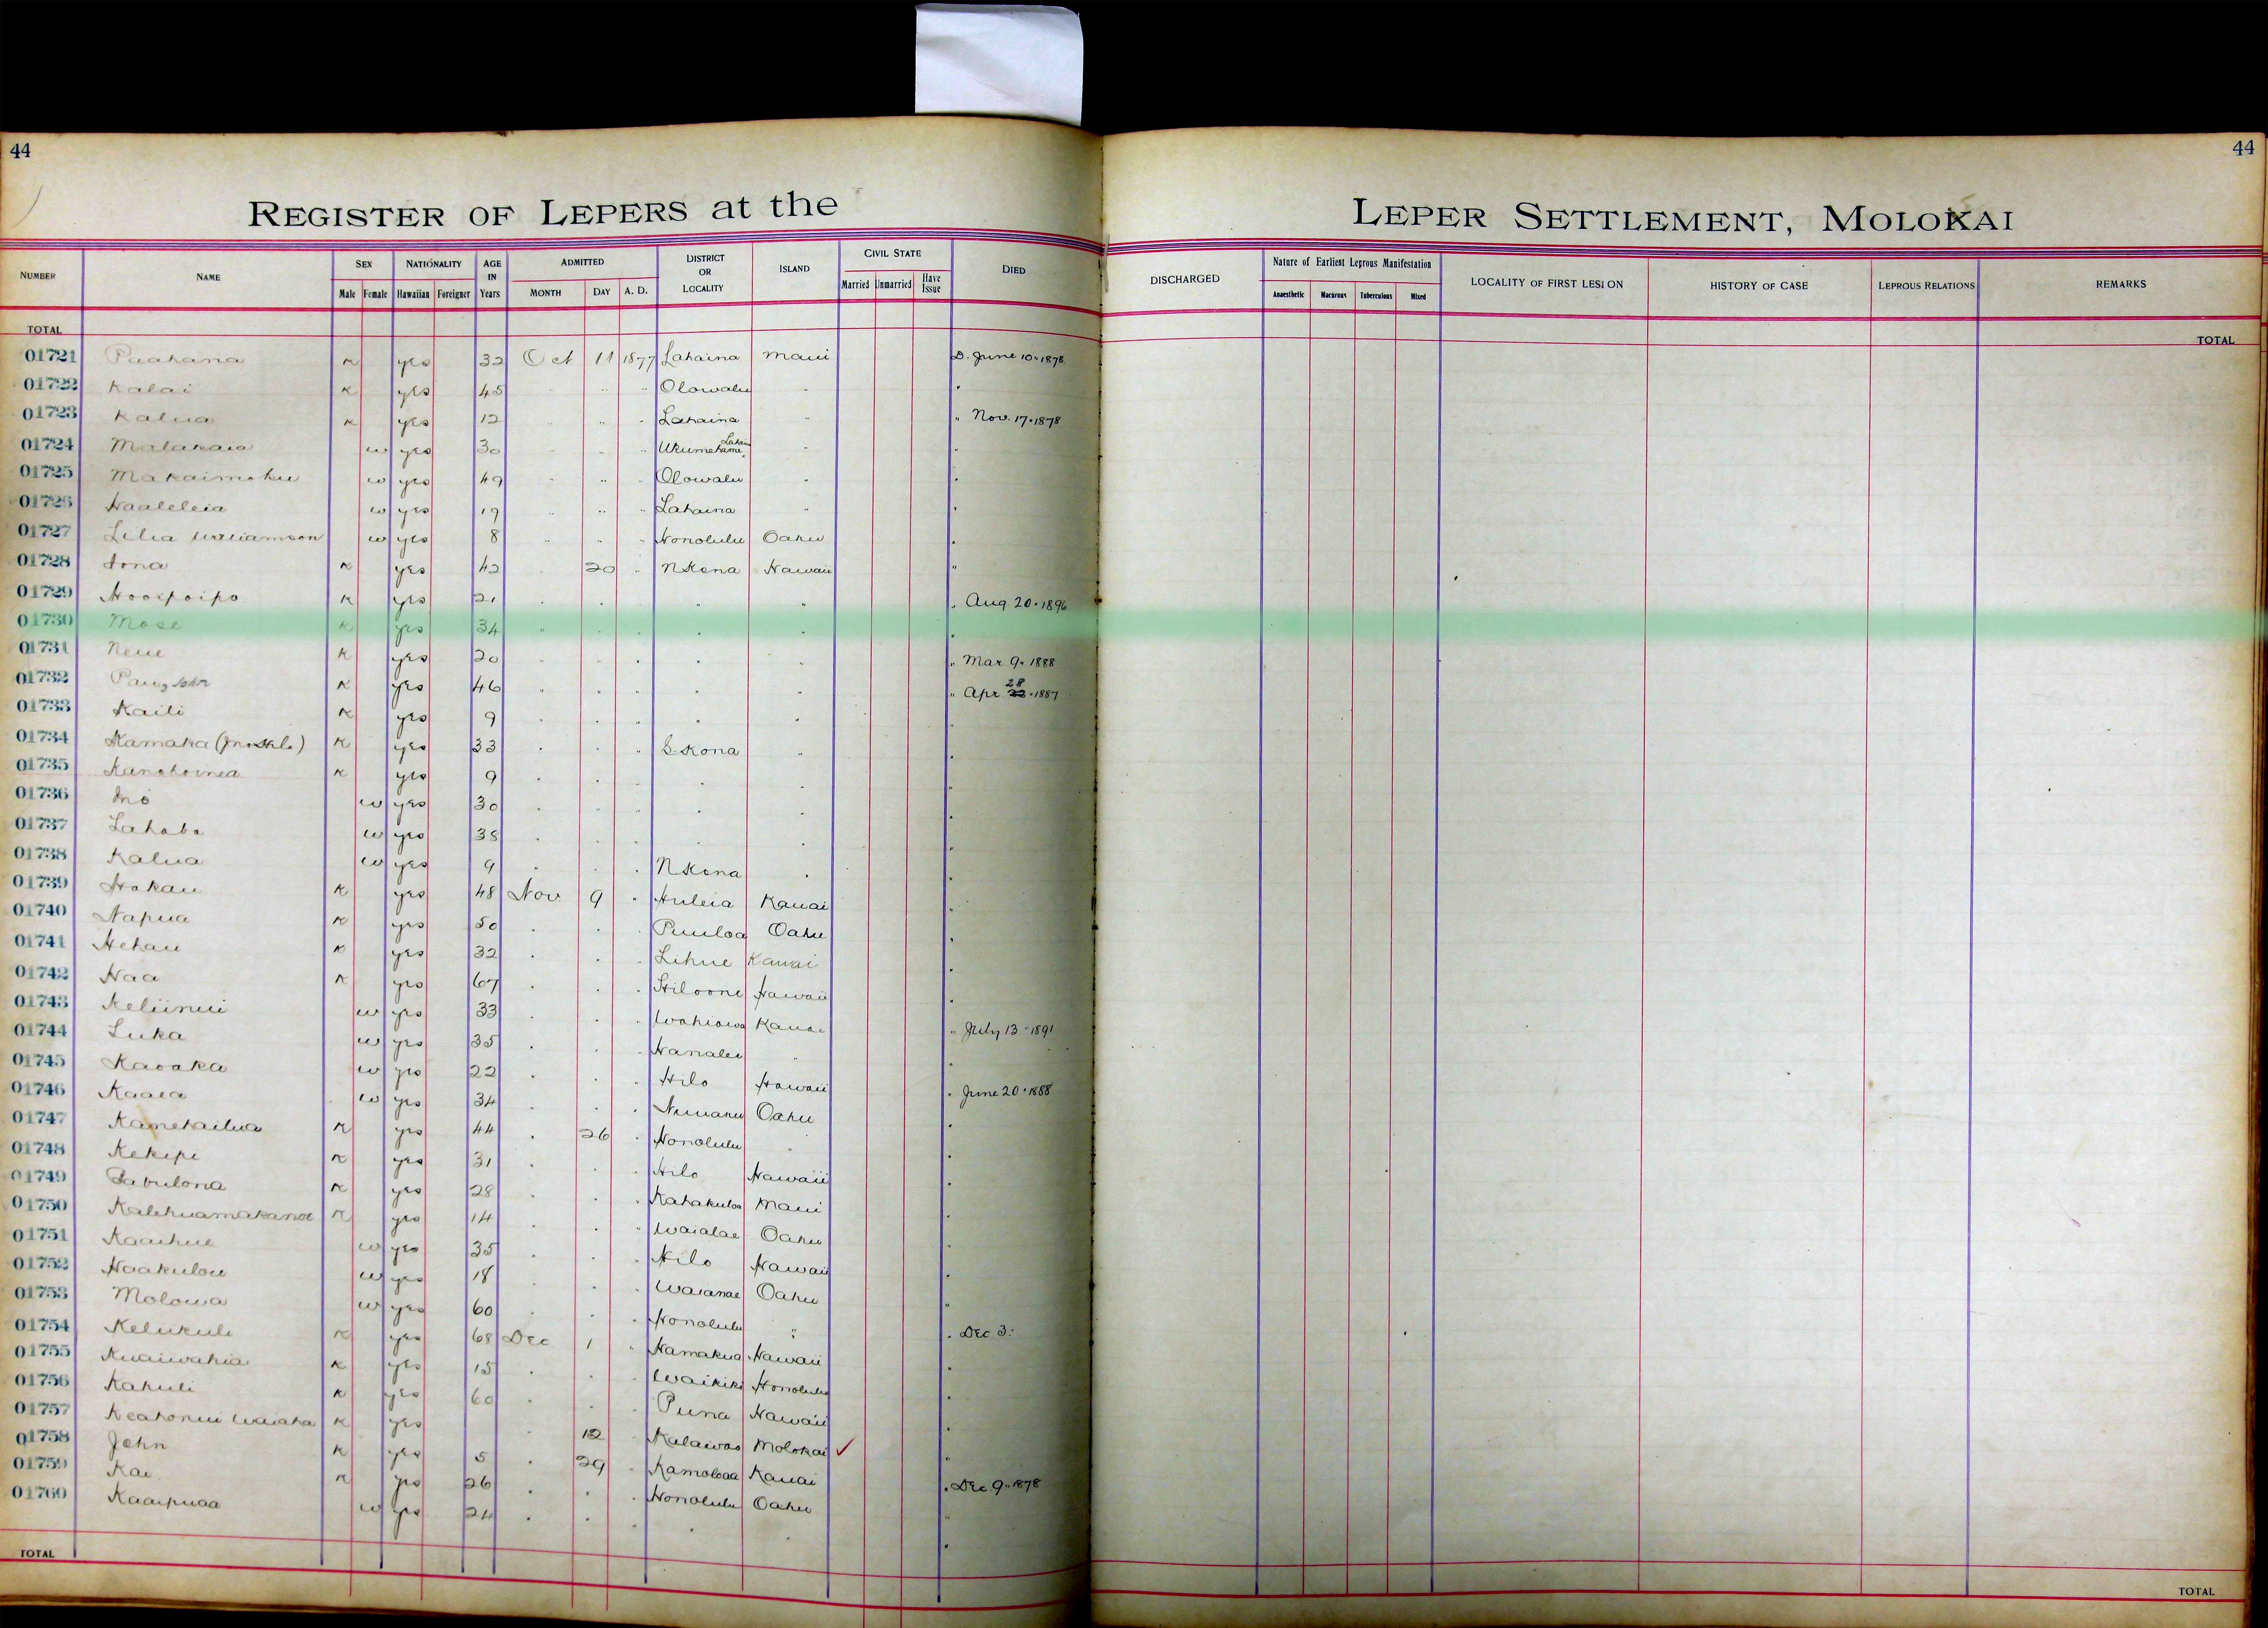 44
44
REGISTER OF LEPERS at the
LEPER SETTLEMENT, MOLOKAI
NUMBER NAME SEX Male Female NATIONALITY Hawaiian Foreigner AGE IN Years ADMITTED MONTH DAY A. D. DISTRICT OR LOCALITY ISLAND CIVIL STATE Married Unmarried Have Issue DIED
DISCHARGED Nature of Earliest Leprous Manifestation Anaesthetic Macurous Tuberculous Mixed LOCALITY OF FIRST LESION HISTORY OF CASE LEPROUS RELATIONS REMARKS
TOTAL
TOTAL
01721 Puahana K yes 32 Oct 11 1877 Lahaina Maui D. June 10 1878
01722 Kalai K yes 45 " " " Olowalu " "
01723 Kalua K yes 12 " " " Lahaina " " Nov. 17 1878
01724 Malakaia w yes 30 " " " Ukumehame " "
01725 Makaimoku w yes 49 " " " Olowalu " "
01726 Haaleleia w yes 19 " " " Lahaina " "
01727 Lilia Williamson w yes 8 " " " Honolulu Oahu "
01728 Iona K yes 42 " 20 " N Kona Hawaii "
01729 Hooipoipo K yes 21 " " " " " " Aug. 20 1896
01730 Mose K yes 34 " " " " " "
01731 Neue K yes 20 " " " " " " Mar 9 1888
01732 K yes 46 " " " " " " Apr 28 1887
01733 Kaili K yes 9 " " " " " "
01734 Kamaka K yes 33 " " " S. Kona " "
01735 K yes 9 " " " " " "
01736 w yes 30 " " " " " "
01737 w yes 38 " " " " " "
01738 Kalua w yes 9 " " " N Kona " "
01739 Hokau K yes 48 Nov 9 " Huleia Kauai "
01740 Napua K yes 50 " " " Puuloa Oahu "
01741 Hehau K yes 32 " " " Lihue Kauai "
01742 Naa K yes 67 " " " Hiloone Hawaii "
01743 Keliinui w yes 33 " " " Wahiawa Kauai " July 13 1891
01744 Luka w yes 35 " " " Hanalei " "
01745 Kaoaka w yes 22 " " " Hilo Hawaii " June 20 1888
01746 Kaaea w yes 34 " " " Nuuanu Oahu "
01747 Kamehailua K yes 44 " 26 " Honolulu " "
01748 Kekipi K yes 31 " " " Hilo Hawaii "
01749 Zabulona K yes 28 " " " Kahakuloa Maui "
01750 Kalehuamakanoe K yes 14 " " " Waialae Oahu "
01751 Kaaihue w yes 35 " " " Hilo Hawaii "
01752 Haakulou w yes 18 " " " Waianae Oahu "
01753 Molowa w yes 60 " " " Honolulu " " Dec 3
01754 Kelukuli K yes 68 Dec 1 " Hamakua Hawaii "
01755 Kuaiwahia K yes 15 " " " Waikiki Honolulu "
01756 Kahuli K yes 60 " " " Puna Hawaii "
01757 Keahonui Waiaha K yes " 12 " Kalawao Molokai ✓ "
01758 John K yes 5 " 29 " Kamoloaa Kauai " Dec 9 1878
01759 Kai K yes 26 " " " Honolulu Oahu "
01760 Kaaipuaa w yes 24 " " " " " "
TOTAL
TOTAL